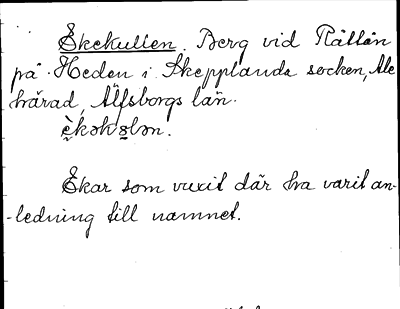 Ekekullen. Berg vid Råttån
på Heden i Skepplanda socken, Ale
härad, Älfsborgs län.
èkəkɷlən.
Ekar som vuxit där ha varit an-
-ledning till namnet.